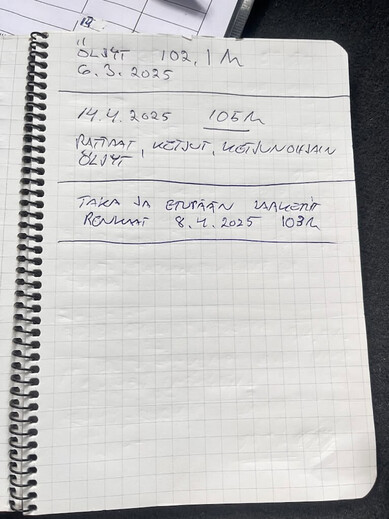 ÖLJYT 102,1 h
6.3.2025
14.4.2025 105h
RATTAAT, KETJUT, KETJUNOHJAIN
ÖLJYT
TAKA JA ETUPÄÄN LAAKERIT
RENKAAT 8.4.2025 103h